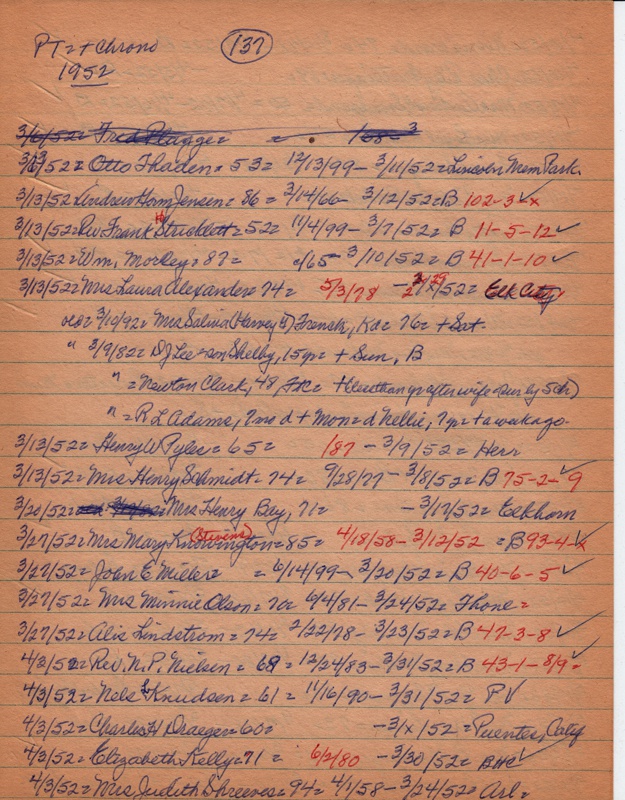 PT= + Chrono 137
1952
3/6/52= Fred Plugge= = 108- 3
3/13/52= Otto Thaden= 53= 12/13/99- 3/11/52= Lincoln Mem Park.
3/13/52= Andrew Hom Jensen= 86= 3/14/66- 3/12/52= B 102-3-x
3/13/52= Rev Frank H Stucklett= 52= 11/4/99- 3/7/52= B 11-5-12
3/13/52= Wm, Morley= 87= c/65- 3/10/52= B 41-1-10
3/13/52= Mrs Laura Alexander= 74= 5/3/78 - 2/29/52= Elk City
3/10/92= Mrs Salvia (Harvey E) French, Kd= 76= + Sat.
" 3/9/82= D J Lee= son Shelby, 15yr= + Sun, B
" = Newton Clark, 48,
" = R L Adams, 7mo d + Mon= d Nellie, 7yr= + a week ago.
3/13/52= Henry W Pyles= 65= /87 - 3/9/52= Herr
3/13/52= Mrs Henry Schmidt= 74= 9/28/77- 3/8/52= B 75-2-9
3/20/52= Mrs Henry Bay, 71= -3/17/52= Elkhorn
3/27/52= Mrs Mary (Stevens) Knowington= 85= 4/18/58- 3/12/52 = B 93-4-x
3/27/52= John E Miller= = 6/14/99- 3/20/52= B 40-6-5
3/27/52= Mrs Minnie Olson= 70= 6/4/81- 3/24/52= Thone=
3/27/52= Alis Lindstrom= 74= 2/22/78- 3/23/52= B 47-3-8
4/3/52= Rev. N. P. Nielsen= 68= 12/24/83- 3/31/52= B 43-1-8/9=
4/3/52= Nels L Knudsen= 61= 11/16/90- 3/31/52= PV
4/3/52= Charles H Draeger= 60= -3/x/52= Puente, Calif
4/3/52= Elizabeth Kelly= 71= 6/2/80 -3/30/52= BHC
4/3/52= Mrs Judith Shreeves= 94= 4/1/58- 3/24/52= Arl=